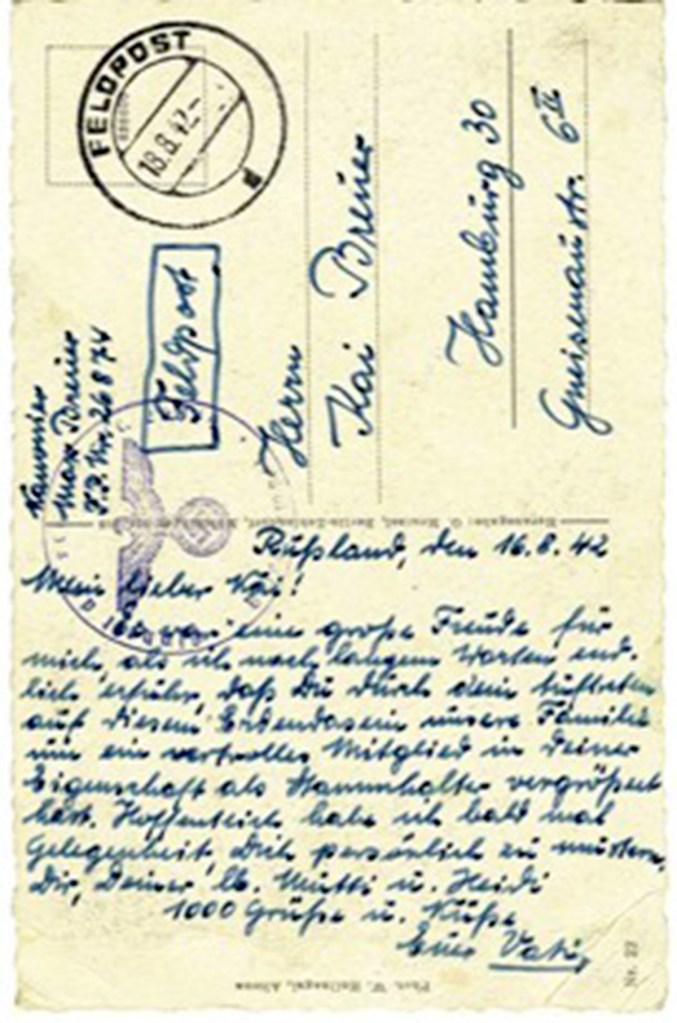 FELDPOST
18.8.42
Feldpost
Kanonier
Max Breuer
F.P. Nr. 26874
Herrn
Kai Breuer
Hamburg 30
Gneisenaustr. 6 II
Rußland, den 16.8.42
Mein lieber Kai!
Es war eine große Freude für
mich, als ich nach langem Warten end-
lich erfuhr, daß Du durch dein Auftreten
auf diesem Erdendasein unsere Familie
um ein wertvolles Mitglied in deiner
Eigenschaft als Stammhalter vergrößert
hast. Hoffentlich habe ich bald mal
Gelegenheit, Dich persönlich zu mustern.
Dir, Deiner lb. Mutti u. Heidi
1000 Grüße u. Küße
Euer Vati
Phot. W. Hellnagel, Altona
Nr. 22